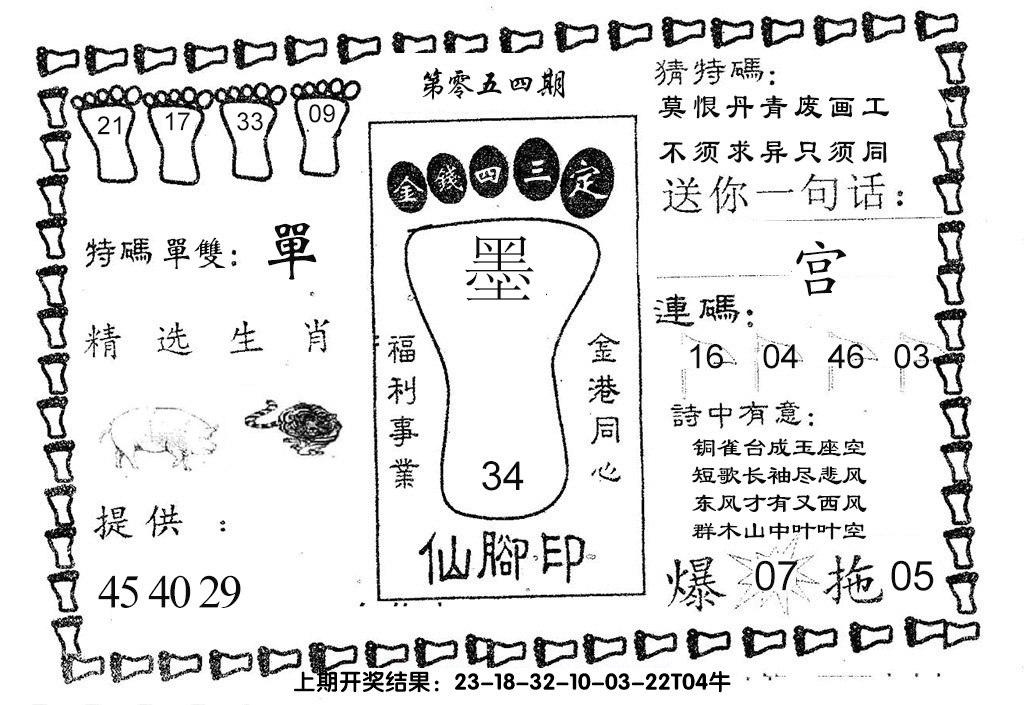 第零五四期
21 17 33 09
特碼單雙：單
精选生肖
提供：
45 40 29
金錢四三定
墨
福利事業
金港同心
34
仙腳印
猜特碼：
莫恨丹青废画工
不须求异只须同
送你一句话：
宫
連碼：
16 04 46 03
詩中有意：
铜雀台成玉座空
短歌长袖尽悲风
东风才有又西风
群木山中叶叶空
爆 07 拖 05
上期开奖结果：23-18-32-10-03-22T04牛